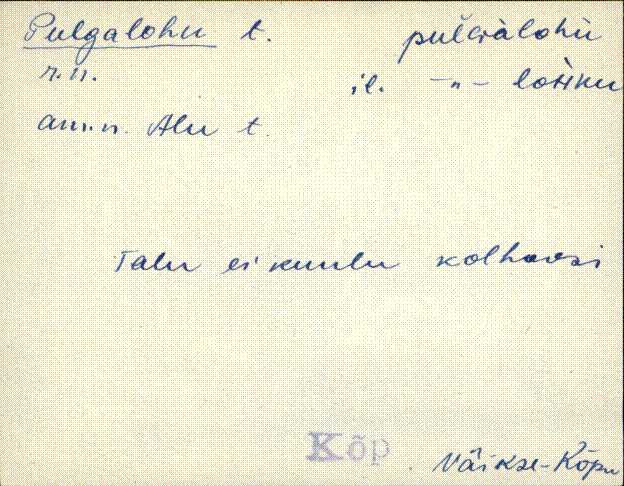 Pulgalohu t. pulGàlohù
r.n. il. -"- lohku
am.n. Alu t.
Talu ei kuulu kolhoosi
Kõp
Väikse-Kõpu